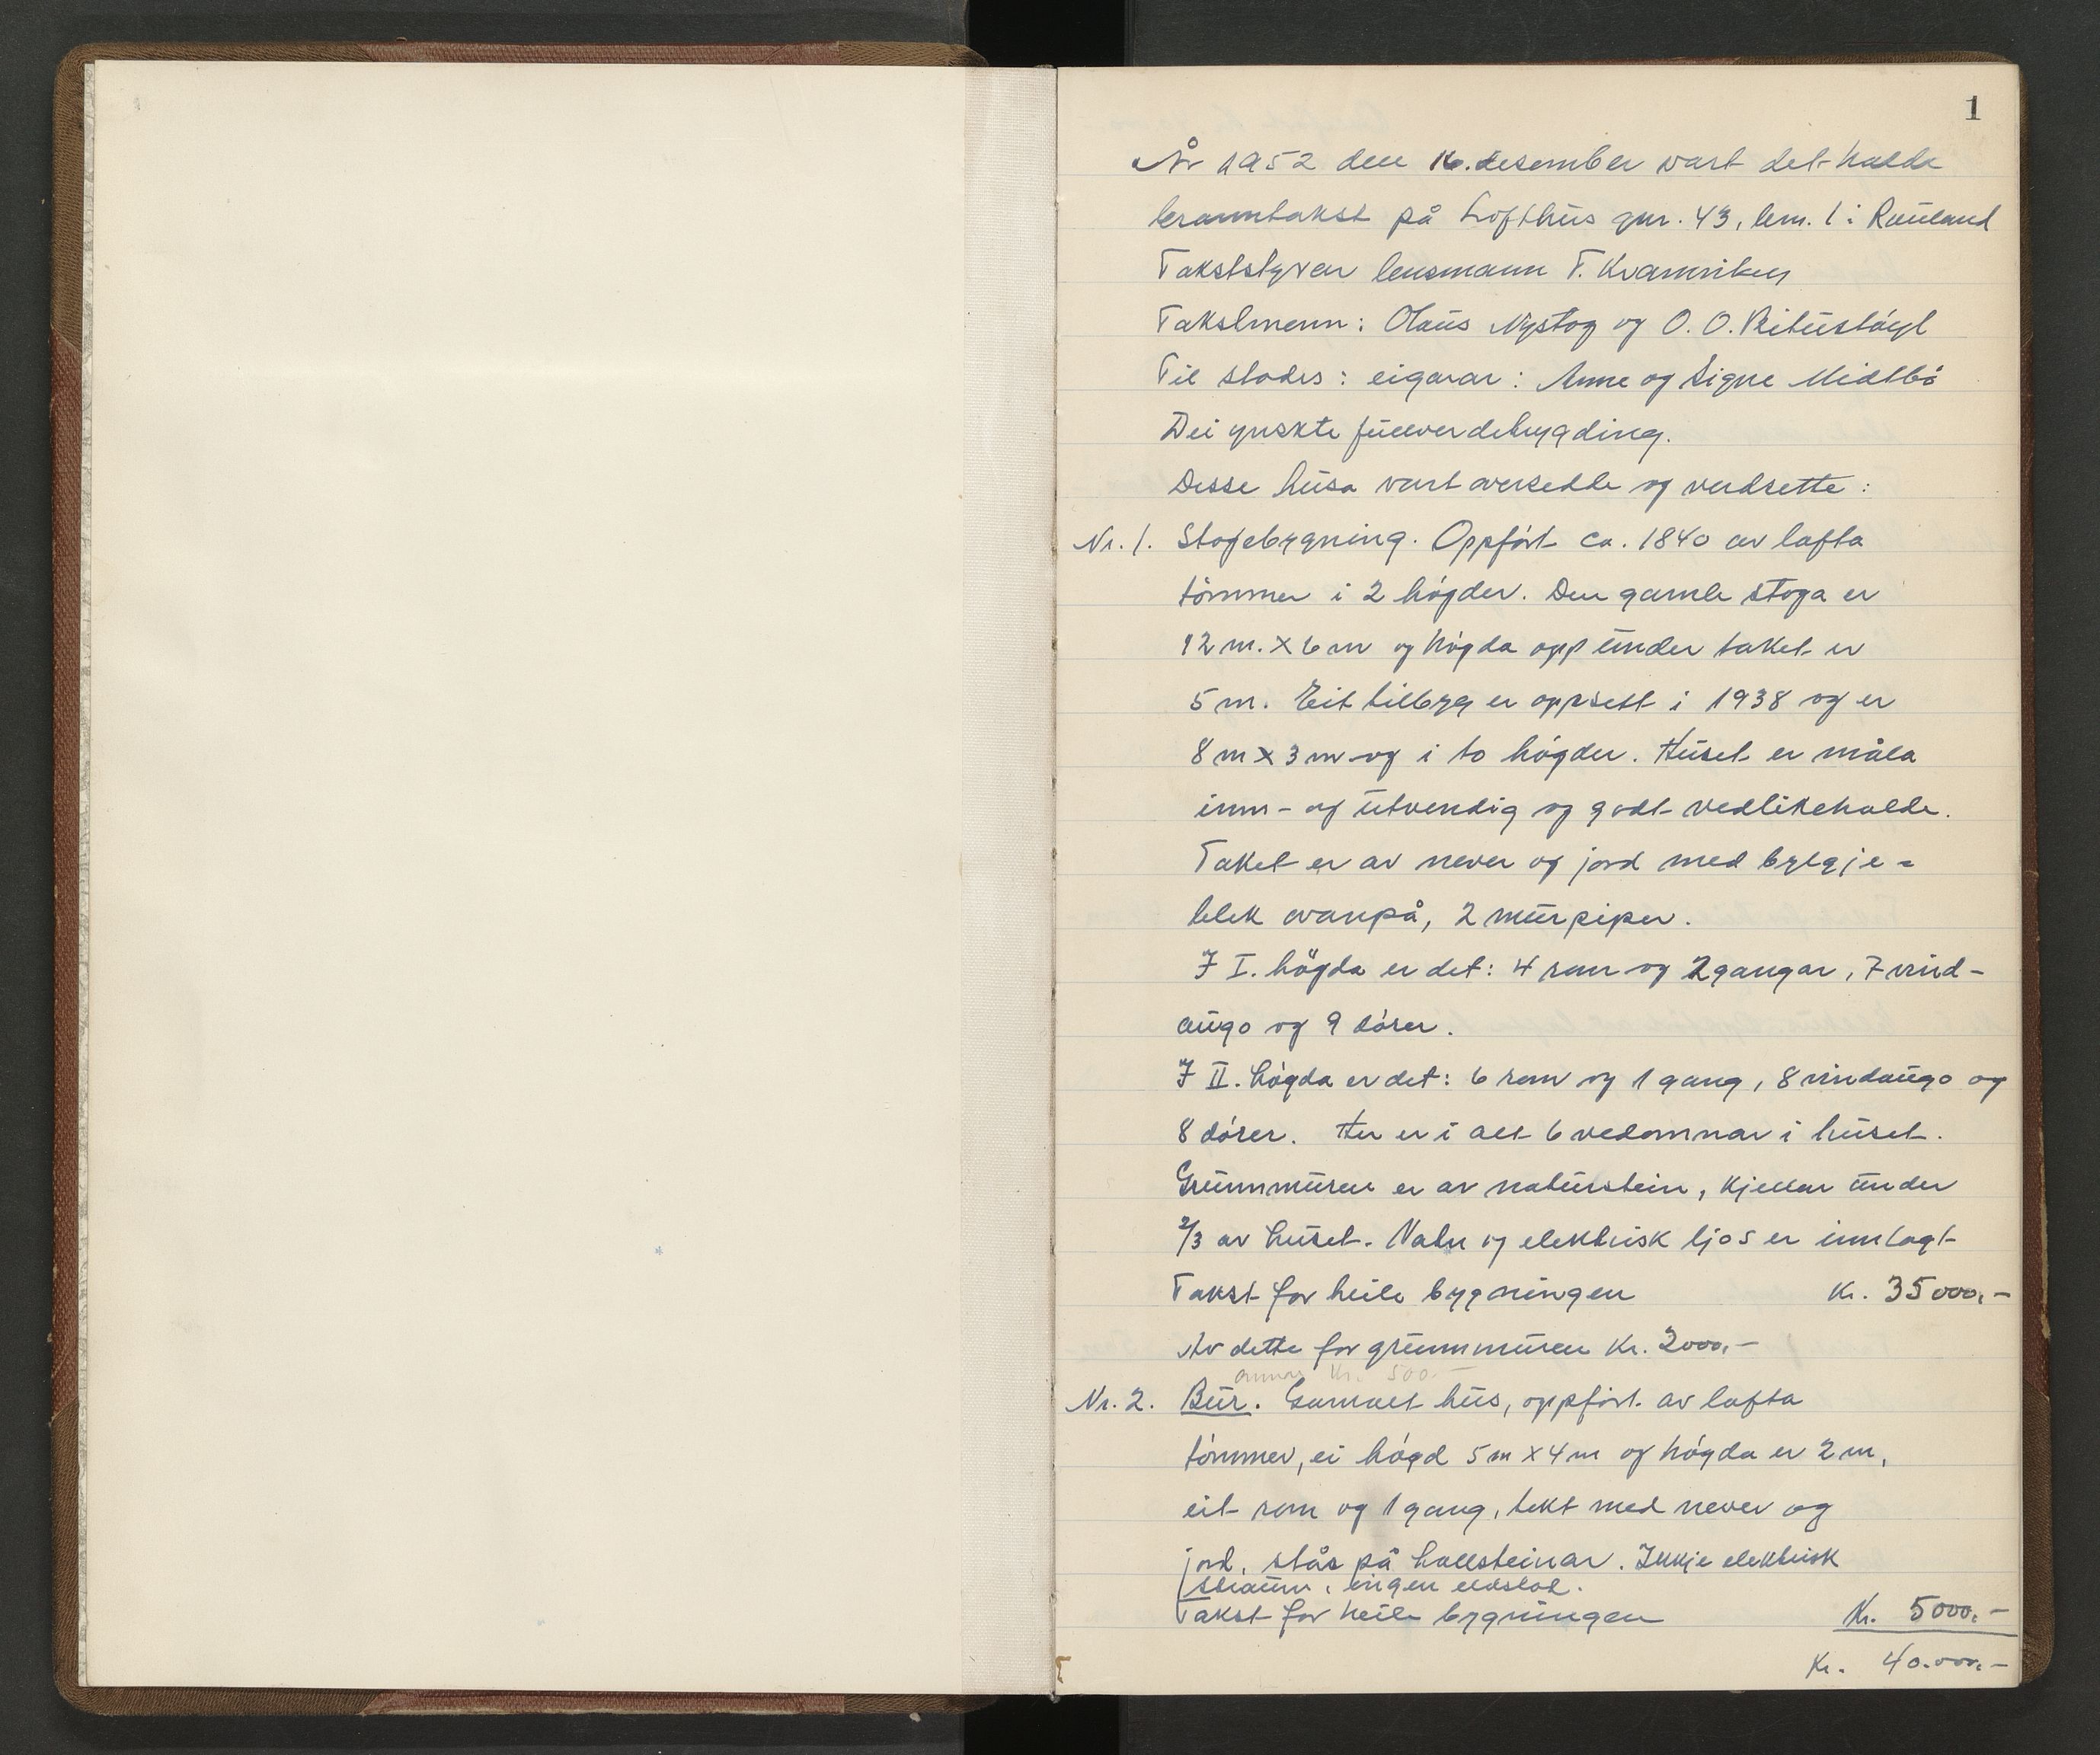 1
År 1952 den 16. desember vart det halde
branntakst på Lofthus gnr. 43, bnr. 1 i Rauland
Takststyrar lensmann T. Kvamniken
Takstmenn: Olaus Nystog og O. O.
Til stades: eigarar: Anne og Signe Midtbö
Dei ynskte fullverdebygding.
Desse husa vart oversedde og verdsette:
Nr. 1. Stogebygning. Oppfört ca. 1840 av lafta
tömmer i 2 högder. Den gamle stoga er
12 m. x 6 m og högda opp under taket er
5 m. Eit tilbyg er oppsett i 1938 og er
8 m x 3 m og i to högder. Huset er måla
inn- og utvendig og godt vedlikehalde.
Taket er av never og jord med bylgje-
blek ovanpå, 2 murpiper.
I I. högda er det: 4 rom og 2 gangar, 7 vind-
augo og 9 dörer.
I II. högda er det: 6 rom og 1 gang, 8 vindaugo og
8 dörer. Her er i alt 6 vedomnar i huset.
Grunnmuren er av naturstein, kjellar under
2/3 av huset. Vatn og elektrisk ljos er innlagt
Takst for heile bygningen Kr. 35000,-
Av dette for grunnmuren Kr. 2000,-
omnar Kr. 500.-
Nr. 2. Bur. Gamalt hus, oppfört av lafta
tömmer, ei högd 5 m x 4 m og högda er 2 m,
eit rom og 1 gang, tekt med never og
jord, står på hallsteinar. Ikkje elektrisk
straum, ingen eldstad.
Takst for heile bygningen Kr. 5000,-
Kr. 40.000,-